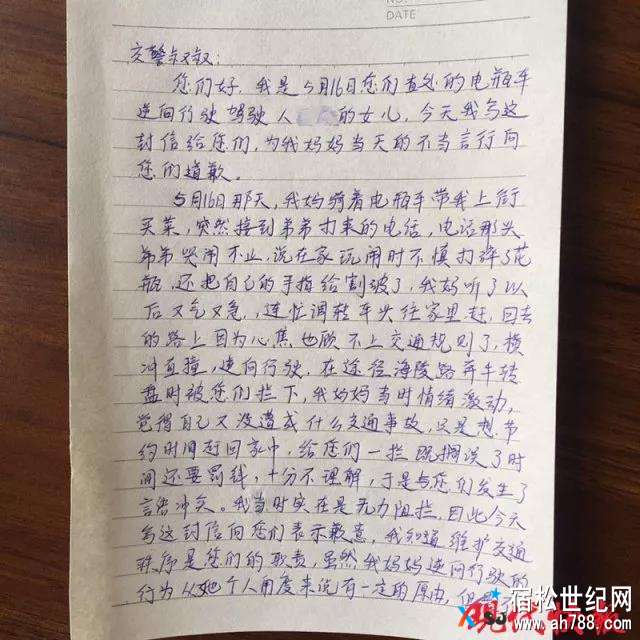 NO.
DATE
交警叔叔:
您们好,我是5月16日您们查处的电瓶车
逆向行驶驾驶人 的女儿,今天我写这
封信给您们,为我妈妈当天的不当言行向
您们道歉。
5月16日那天,我妈骑着电瓶车带我上街
买菜,突然接到弟弟打来的电话,电话那头
弟弟哭闹不止,说在家玩闹时不慎打碎了花
瓶,还把自己的手指给割破了,我妈听了以
后又气又急,连忙调转车头往家里赶,回去
的路上因为心焦也顾不上交通规则了,横
冲直撞,逆向行驶,在途径海陵路奔牛转
盘时被您们拦下,我妈妈当时情绪激动,
觉得自己又没造成什么交通事故,只是想节
约时间赶回家中,给您们一拦既耽误了时
间还要罚钱,十分不理解,于是与您们发生了
言语冲突。我当时实在是无力阻拦,因此今天
写这封信向您们表示歉意,我知道维护交通
秩序是您们的职责,虽然我妈妈逆向行驶的
行为从她个人角度来说有一定的原由,但
现代快报
宿松世纪网
www.ah788.com